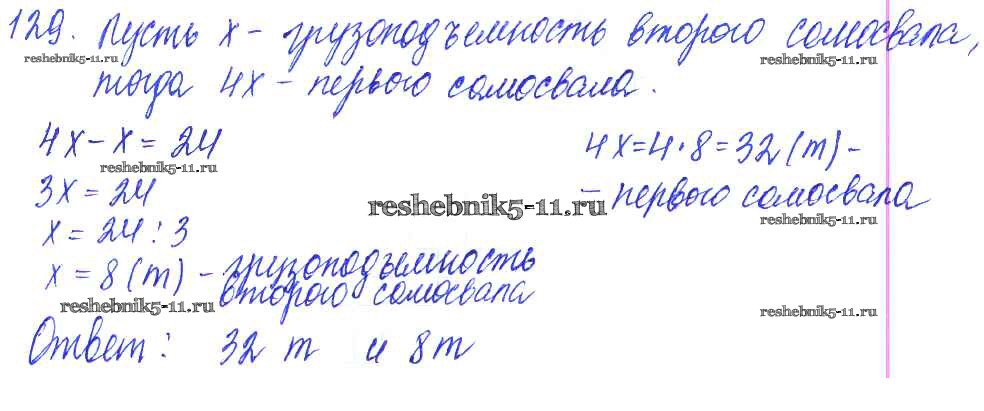 129. Пусть x – грузоподъемность второго самосвала,
reshebnik5-11.ru reshebnik5-11.ru
тогда 4x – первого самосвала.
4x – x = 24
reshebnik5-11.ru
3x = 24
x = 24 : 3
x = 8 (т) – грузоподъемность
второго самосвала
reshebnik5-11.ru
4x = 4 · 8 = 32 (т) –
– первого самосвала
reshebnik5-11.ru
reshebnik5-11.ru
reshebnik5-11.ru
Ответ: 32 т и 8 т